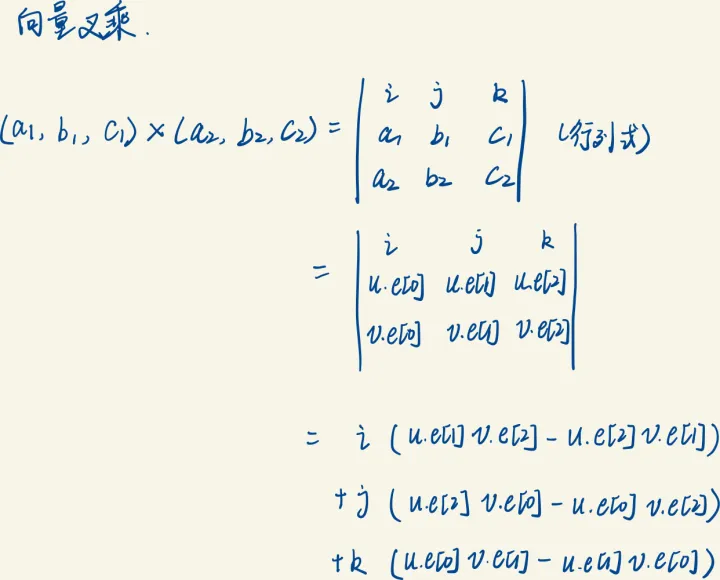 向量叉乘.
(a1, b1, c1) × (a2, b2, c2) = | i j k |
| a1 b1 c1 | (行列式)
| a2 b2 c2 |
= | i j k |
| u.e[0] u.e[1] u.e[2] |
| v.e[0] v.e[1] v.e[2] |
= i (u.e[1] v.e[2] - u.e[2] v.e[1])
+ j (u.e[2] v.e[0] - u.e[0] v.e[2])
+ k (u.e[0] v.e[1] - u.e[1] v.e[0])